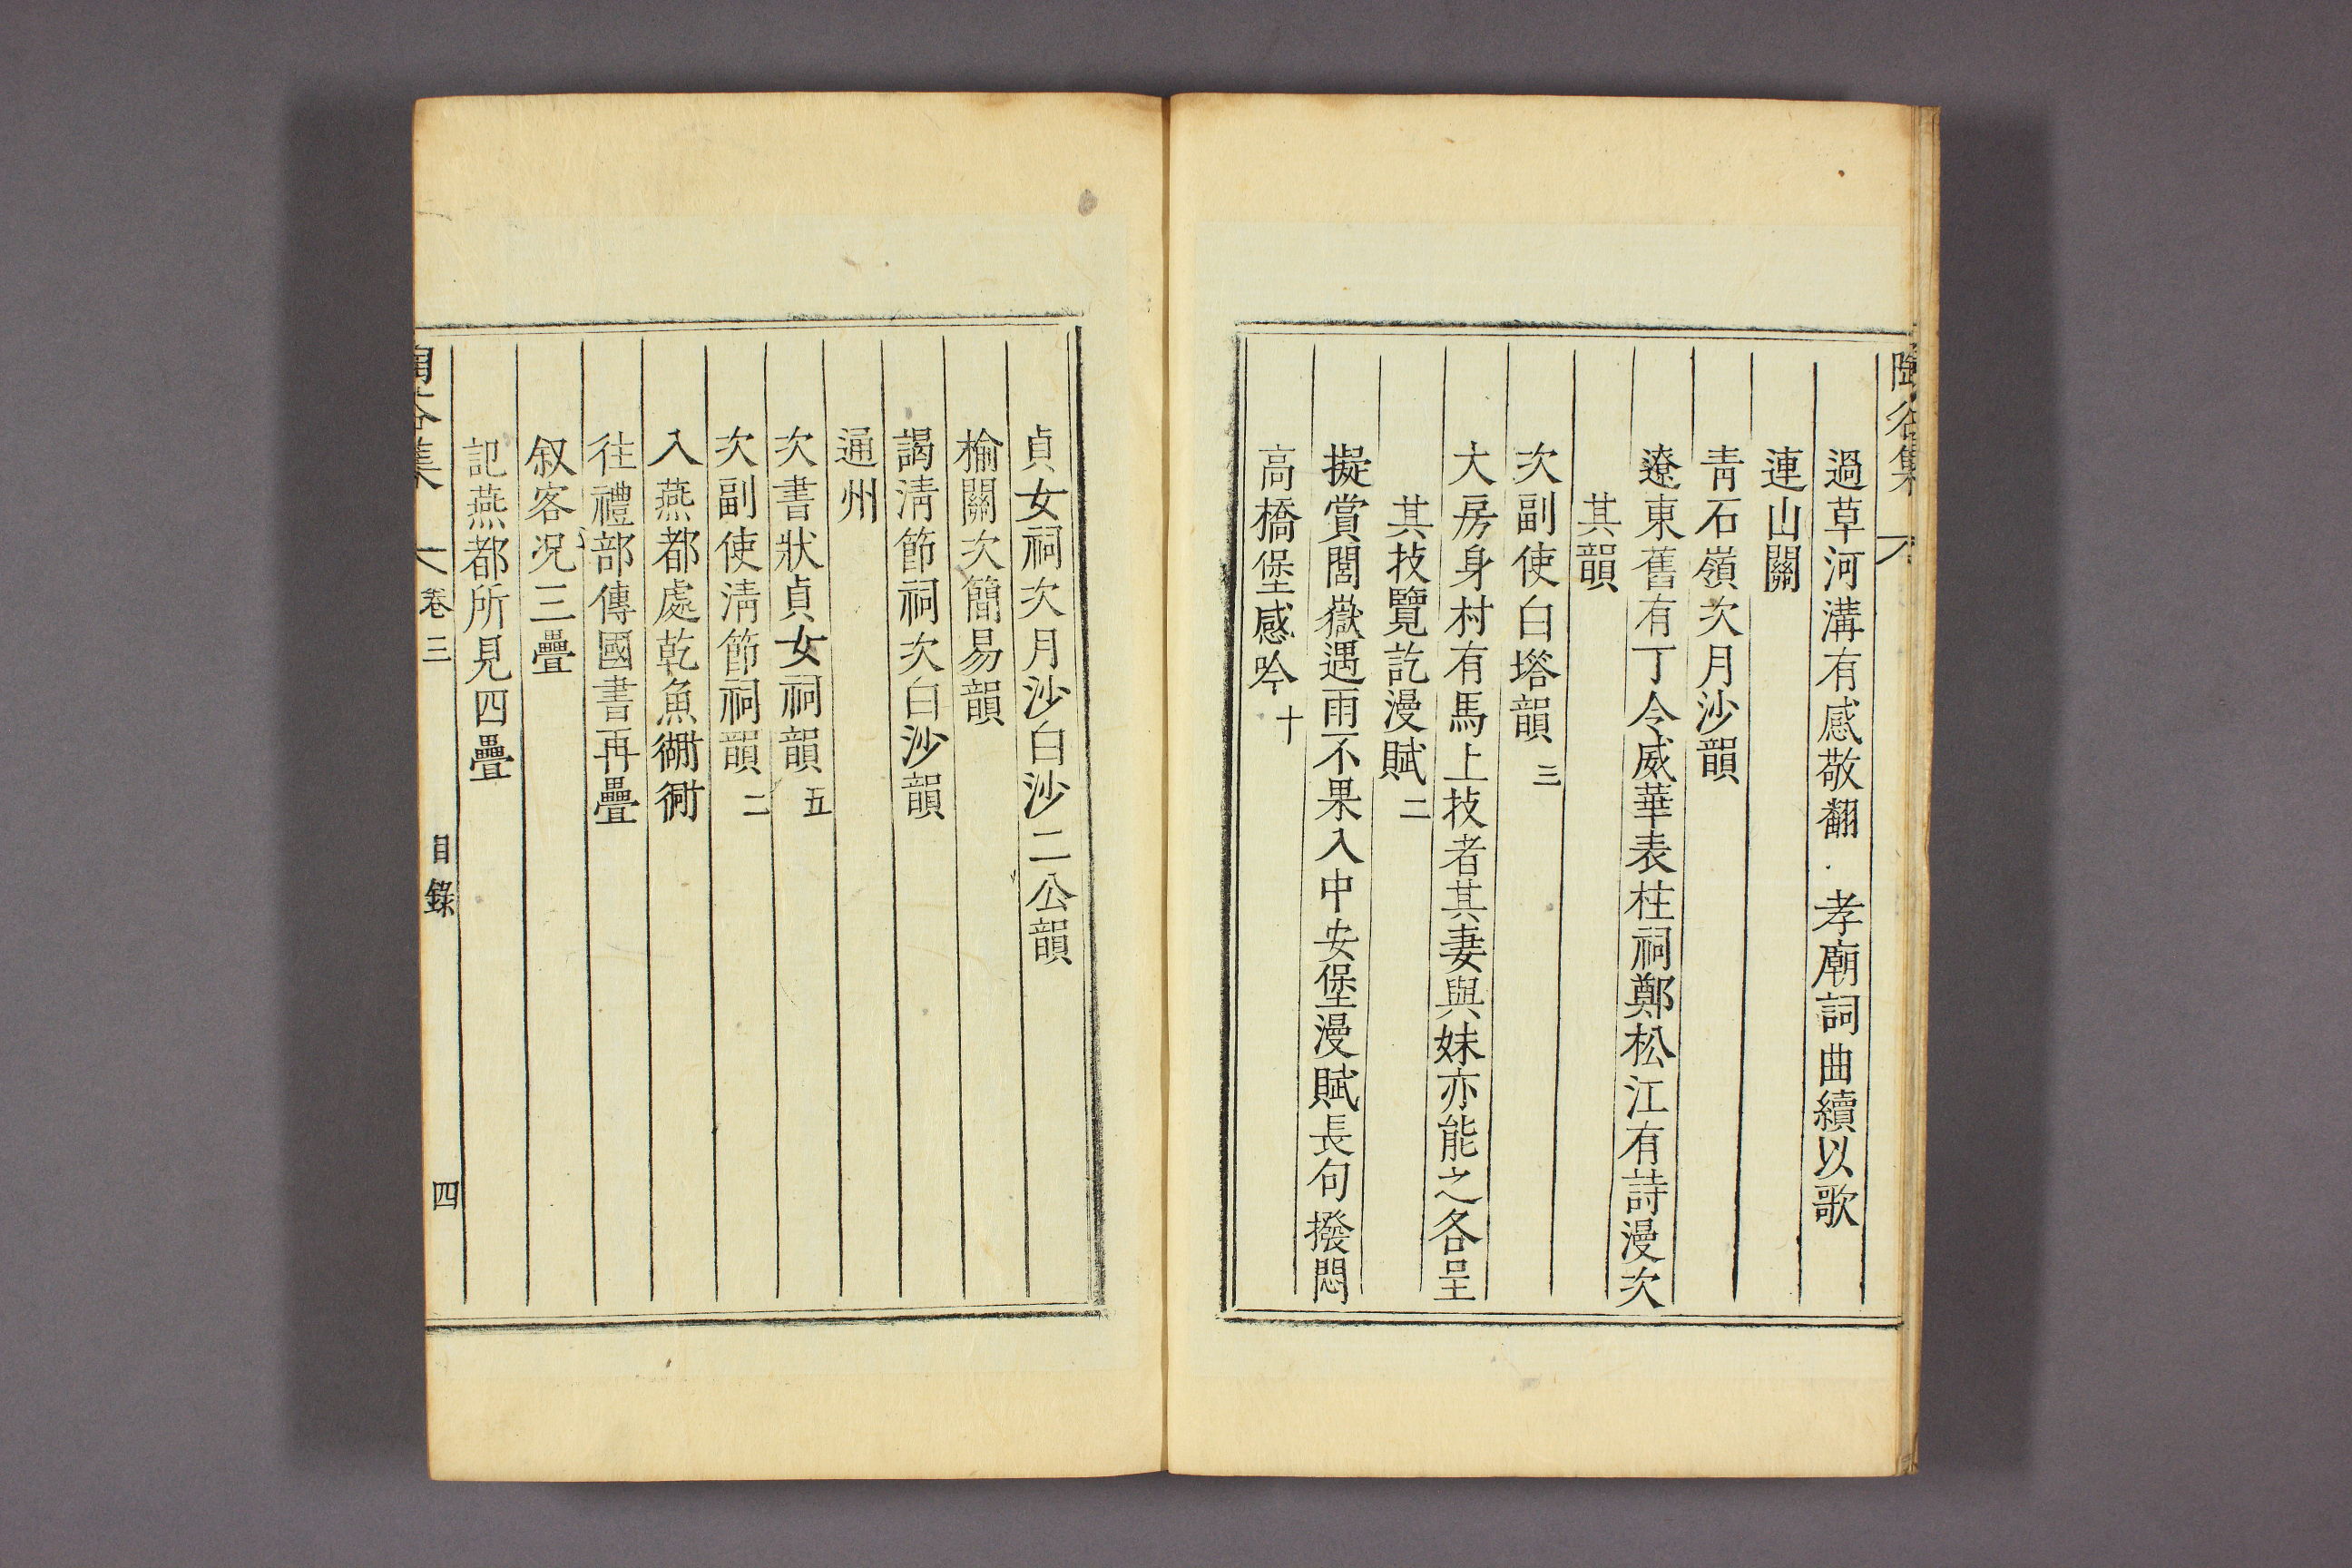 谷集
過草河溝有感敬翻 孝廟詞曲續以歌
連山關
青石嶺次月沙韻
遼東舊有丁令威華表柱祠鄭松江有詩漫次
其韻
次副使白塔韻 三
大房身村有馬上技者其妻與妹亦能之各呈
其技覽訖漫賦 二
擬賞閭嶽遇雨不果入中安堡漫賦長句撥悶
高橋堡感吟 十
貞女祠次月沙白沙二公韻
榆關次簡易韻
謁淸節祠次白沙韻
通州
次書狀貞女祠韻 五
次副使淸節祠韻 二
入燕都處乾魚衚衕
往禮部傳國書再疊
叙客况三疊
記燕都所見四疊
谷集 卷三 目錄 四